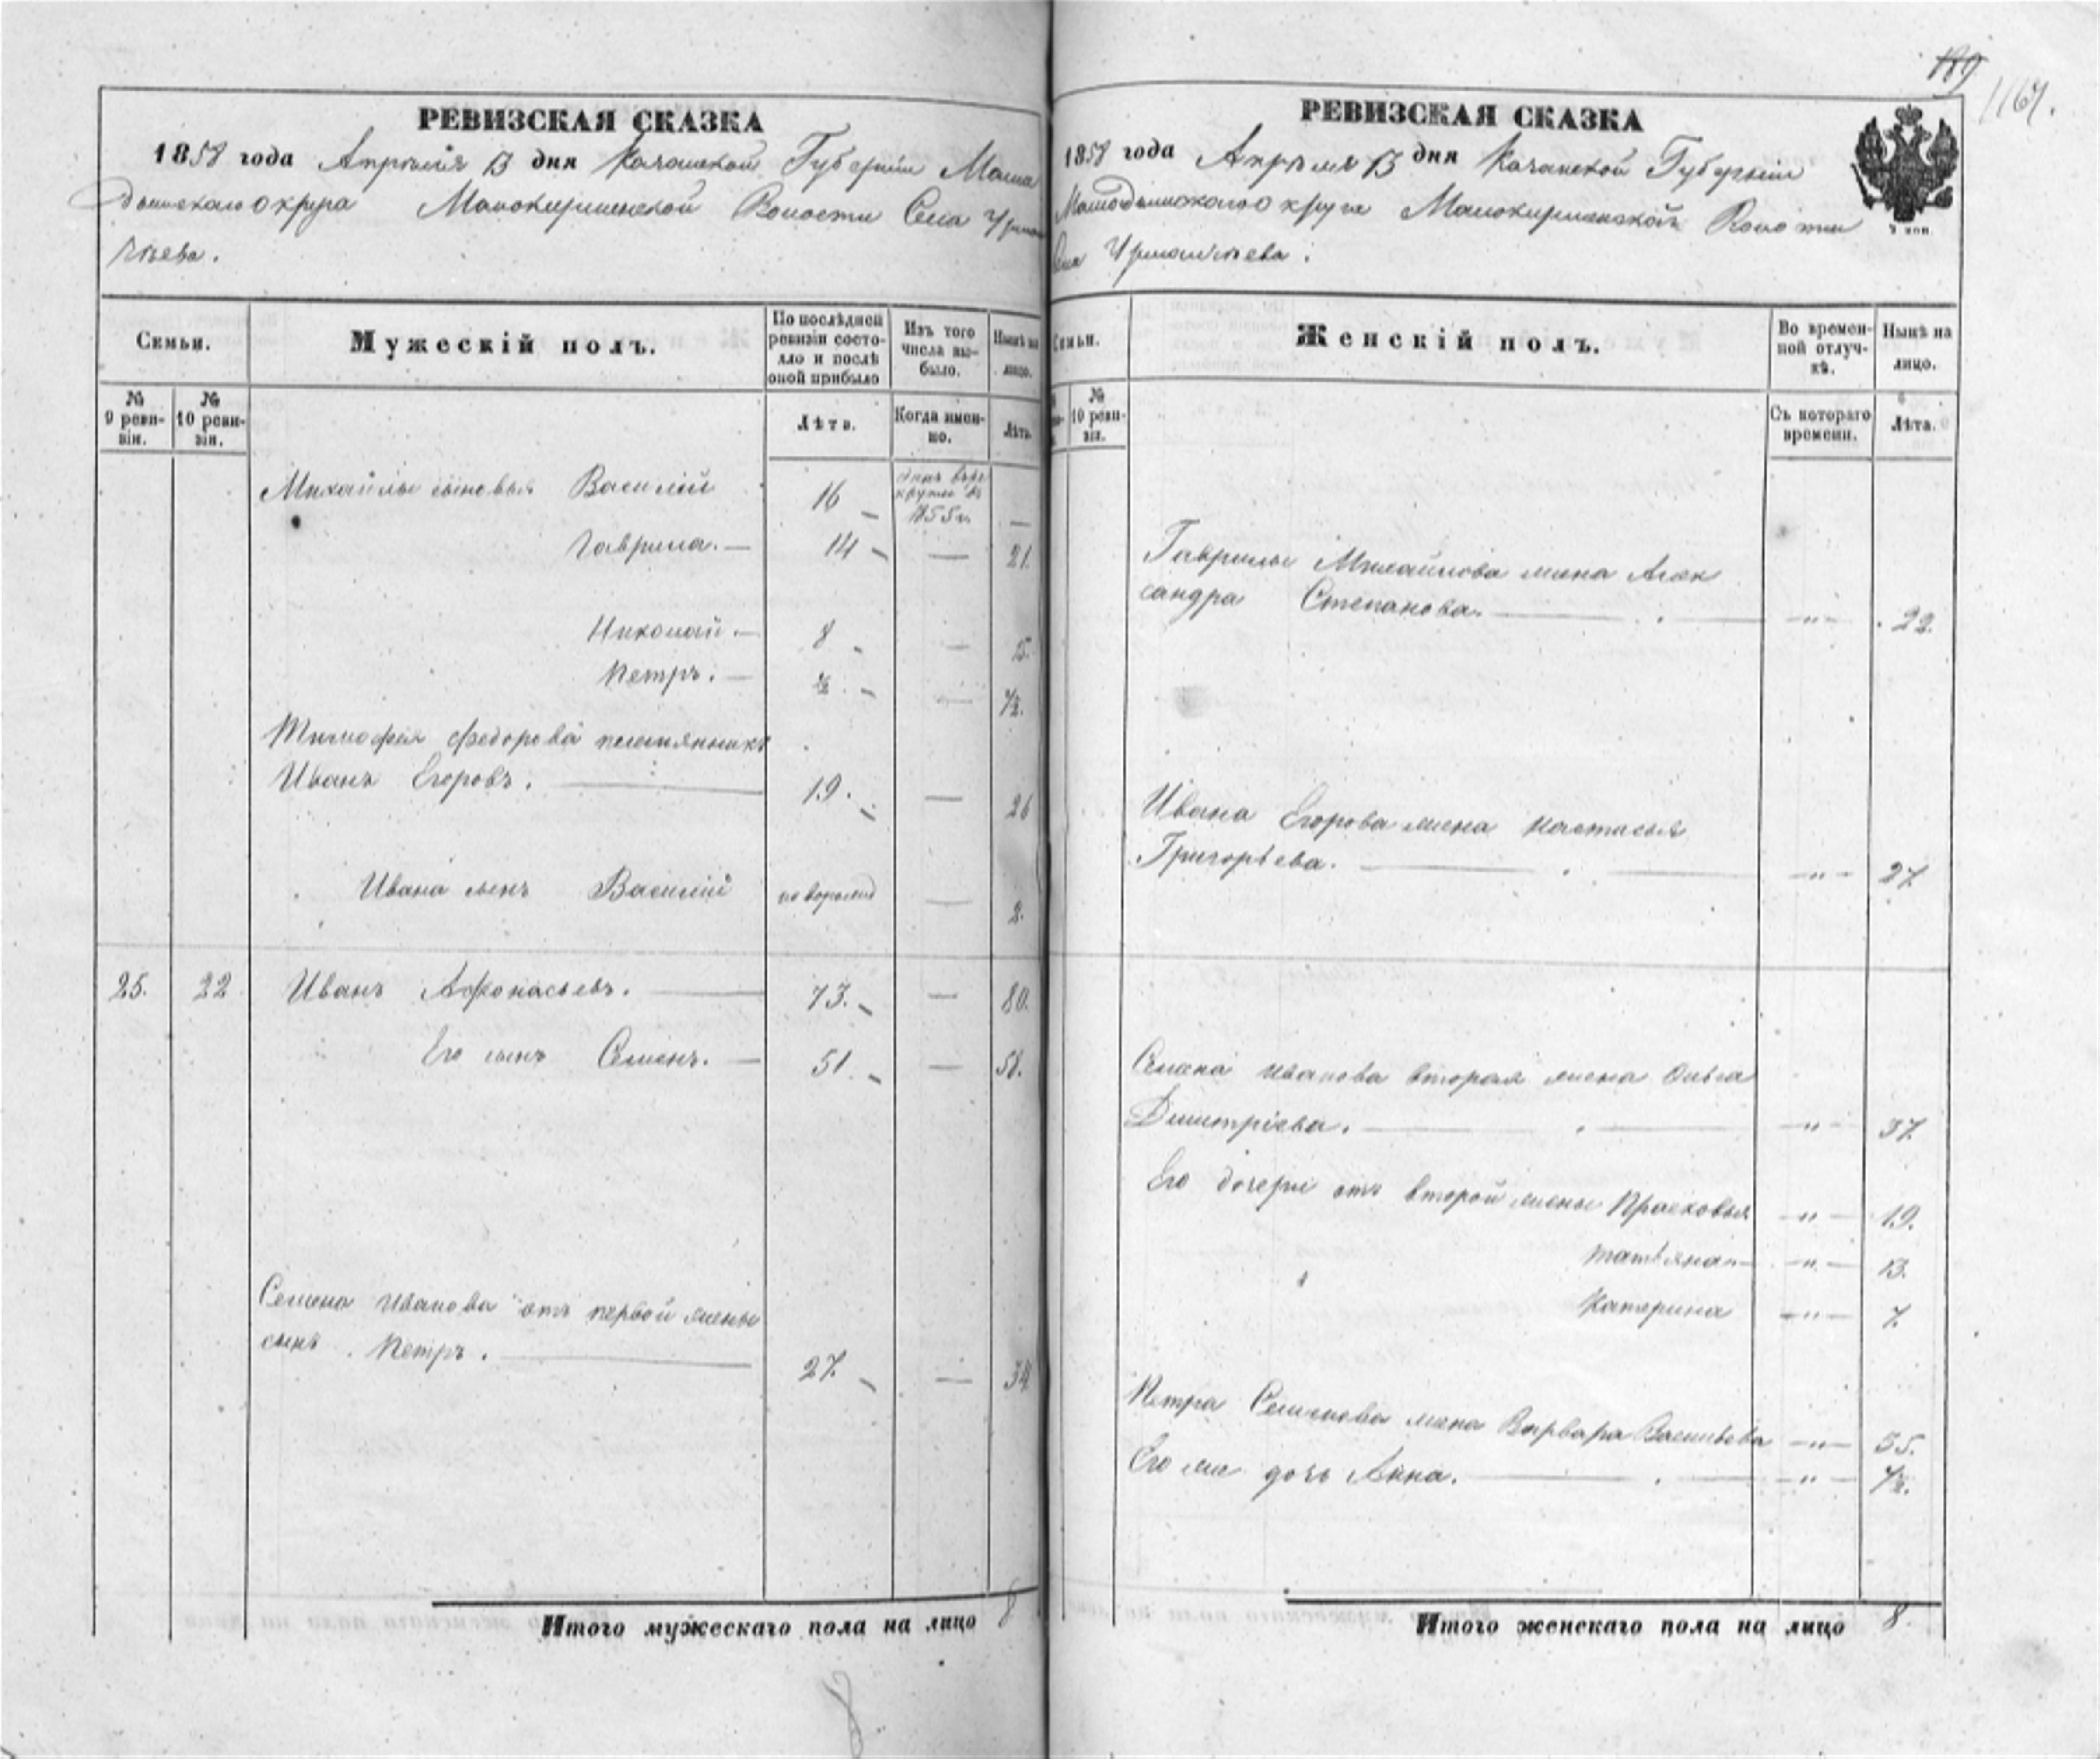 189
1167.
РЕВИЗСКАЯ СКАЗКА
1858 года Апреля 13 дня Казанской Губернии Мама
дышскаго округа Малокирменской Волости Села Урман
чеева.
Семьи.
Мужескій полъ.
По послѣдней ревизіи состояло и послѣ оной прибыло
Изъ того числа выбыло.
Нынѣ на лицо.
№ 9 ревизіи.
№ 10 ревизіи.
Лѣта.
Когда именно.
Лѣта.
Михайлы сыновья Василій 16 —
1855 г.
Гаврила. — 14 — — 21.
Николай. — 8 — — 15.
Петръ. — ½ — — 7½.
Тимофея Федорова племянникъ
Иванъ Егоровъ. — 19. — — 26
Ивана сынъ Василій новорожд — 2.
25. 22 Иванъ Афонасьевъ. — 73. — — 80.
Его сынъ Семенъ. — 51. — — 58.
Семена Иванова отъ первой жены
сынъ Петръ. — 27. — — 34
Итого мужескаго пола на лицо 8
8.
РЕВИЗСКАЯ СКАЗКА
1858 года Апреля 13 дня Казанской Губерніи
Мамадышскаго округа Малокирменской Волости
Села Урманчеева.
7 коп.
Семьи.
Женскій полъ.
Во временной отлучкѣ.
Нынѣ на лицо.
№ 10 ревизіи.
Съ котораго времени.
Лѣта.
Гаврилы Михайлова жена Алек
сандра Степанова. — „ — 22.
Ивана Егорова жена Настасья
Григорьева. — „ — 27
Семена Иванова вторая жена Ольга
Димитріева. — „ — 37
Его дочери отъ второй жены Прасковья — „ — 19.
Татьяна — „ — 13.
Катерина — „ — 7.
Петра Семенова жена Варвара Васильева — „ — 35.
Его же дочь Анна. — „ — ½.
Итого женскаго пола на лицо 8.